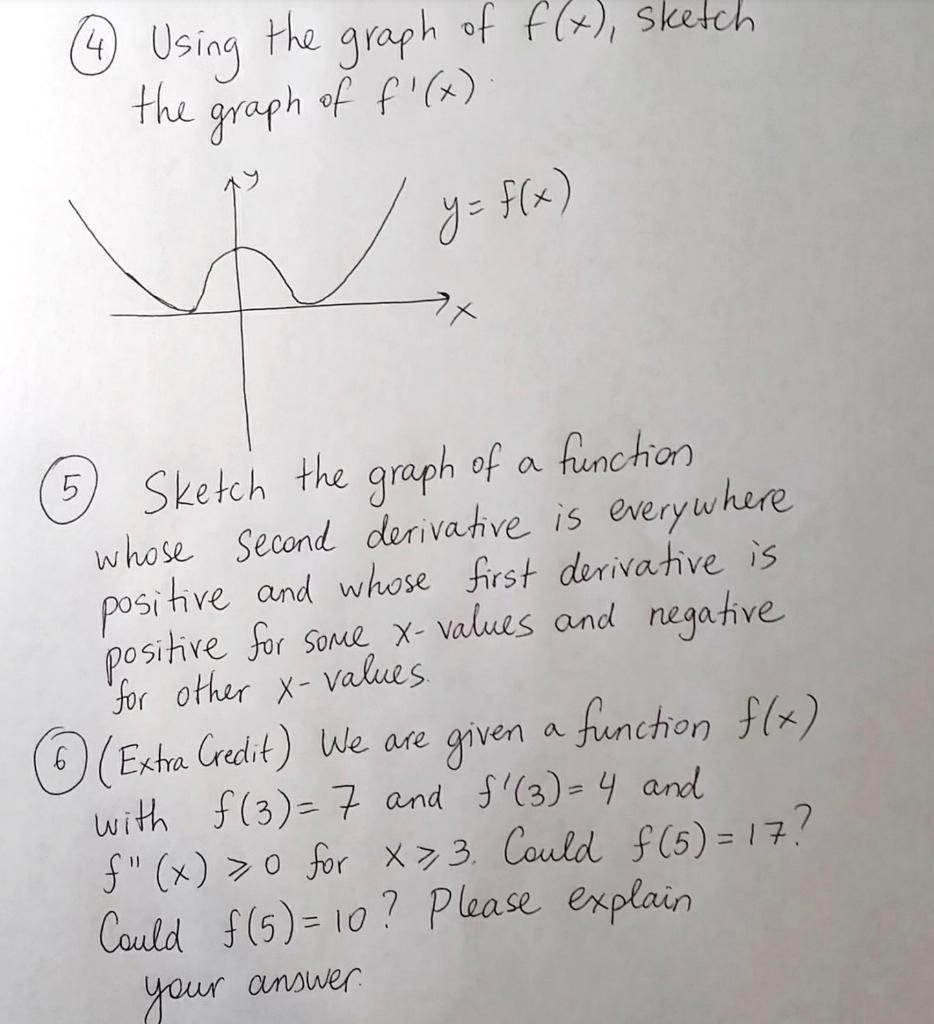 ④ Using the graph of f(x), sketch
the graph of f'(x)
y
y = f(x)
x
⑤ Sketch the graph of a function
whose second derivative is everywhere
positive and whose first derivative is
positive for some x-values and negative
for other x-values.
⑥ (Extra Credit) We are given a function f(x)
with f(3) = 7 and f'(3) = 4 and
f"(x) ⩾ 0 for x ⩾ 3. Could f(5) = 17?
Could f(5) = 10? Please explain
your answer.